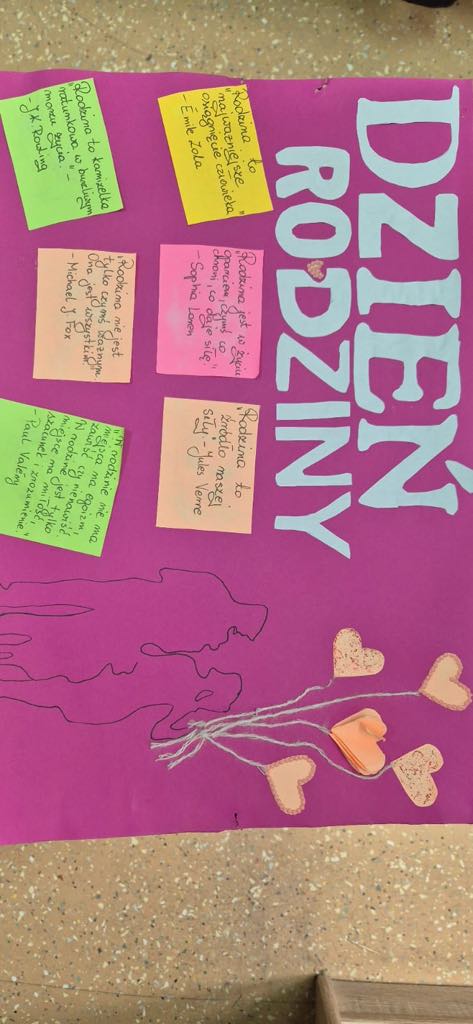 DZIEŃ
RODZINY
„Rodzina to
najważniejsze
osiągnięcie człowieka"
- Émile Zola
„Rodzina jest w życiu
oparciem, czymś co
chroni, co daje siłę"
- Sophia Loren
„Rodzina to
źródło naszej
siły" - Jules Verne
„Rodzina to kamizelka
ratunkowa w burzliwym
morzu życia." -
- J.K Rowling
„Rodzina nie jest
tylko czymś ważnym.
Ona jest wszystkim"
- Michael J Fox
„W rodzinie nie ma
miejsca na egoizm,
zawiść czy nienawiść.
W rodzinie
miejsce ma jest tylko
szacunek i zrozumienie."
- Paul Valéry